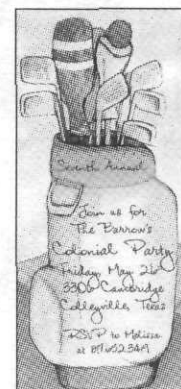 Seventh Annual
Join us for
The Barrow's
Colonial Party
Friday, May 26
3306
Colleyville, Texas
RSVP to Melissa
at